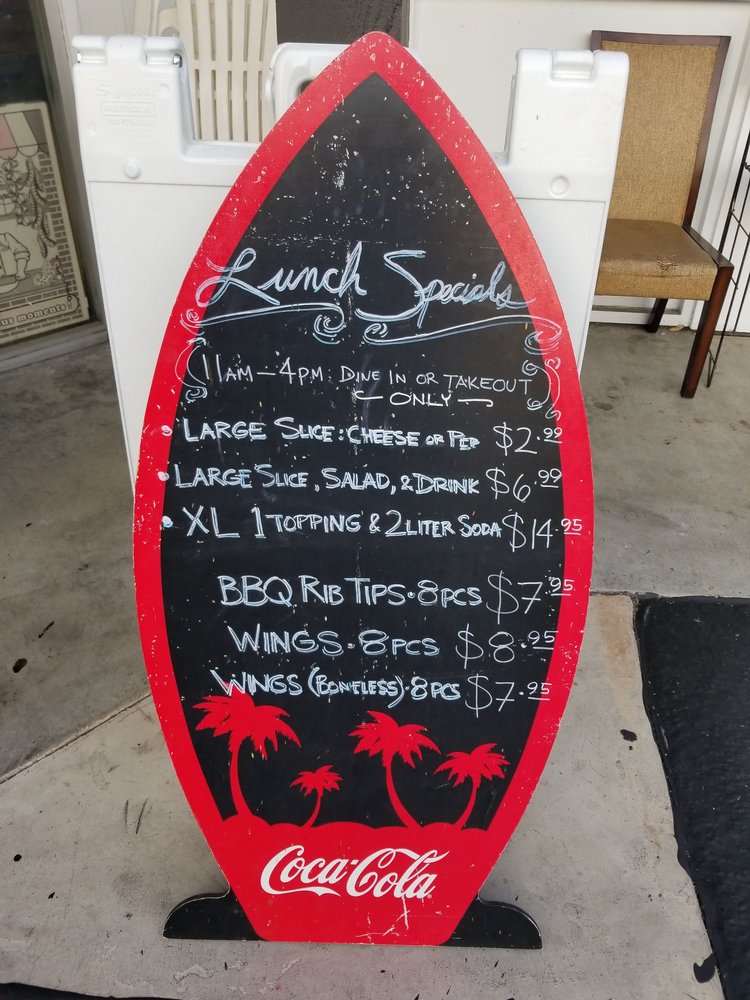 Lunch Specials
(11AM - 4PM DINE IN OR TAKEOUT)
ONLY
LARGE SLICE: CHEESE OR PEP $2.99
LARGE SLICE, SALAD, & DRINK $6.99
XL 1 TOPPING & 2 LITER SODA $14.95
BBQ RIB TIPS • 8PCS $7.95
WINGS • 8PCS $8.95
WINGS (BONELESS) • 8PCS $7.95
Coca-Cola
us moments